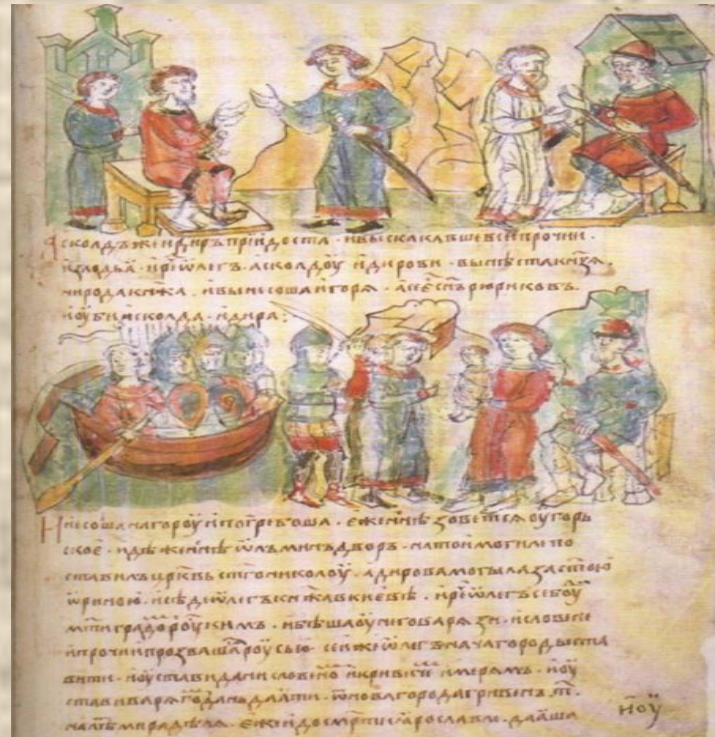 Асколдъ же и диръ прїидоста · и выскакавше вси прочии ·
изъ лодьꙗ · и рече ѡлегъ · асколдоу и дирови · вы нѣста кнѧзѧ ·
ни рода кнѧжа · и вынесоша игорѧ · а се есть сынъ рюриковъ ·
и оубиша асколда · и дира :
И несоша на гороу и погребоша · еже нынѣ зоветсѧ оугорь
ское · идѣже нынѣ ѡлъминъ дворъ · на той могилѣ по
ставилъ цр҃квь ст҃го николоу · а дирова могыла за ст҃ою
ѡриною · и сѣде ѡлегъ кнѧжа в киевѣ · и рече ѡлегъ се боуди
мт҃и градомъ роускимъ · и бѣша оу него варѧзи · и словене
и прочии прозвашасѧ роусью · сей же ѡлегъ нача городы ста
вити · и оустави дани словѣномъ и кривичемъ и мерѧмъ · и оу
стави варѧгомъ дань даꙗти · ѿ новагорода гривенъ · т҃ ·
на лѣто мира дѣлѧ · еже и до смерти ꙗрославлѧ · даꙗша
ноу